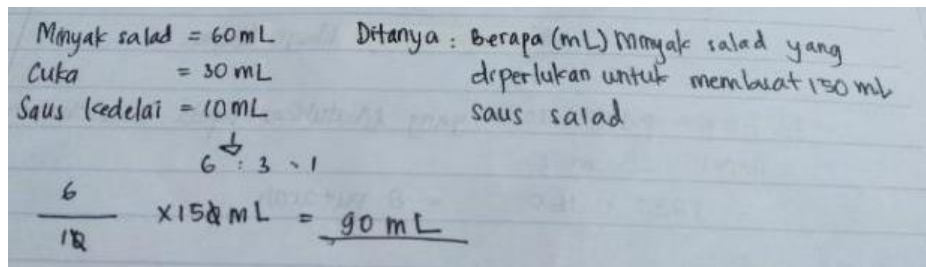 Minyak salad = 60 mL
Cuka = 30 mL
Saus kedelai = 10 mL
Ditanya : Berapa (mL) minyak salad yang
diperlukan untuk membuat 150 mL
saus salad
6 : 3 : 1
6
10 × 150 mL = 90 mL